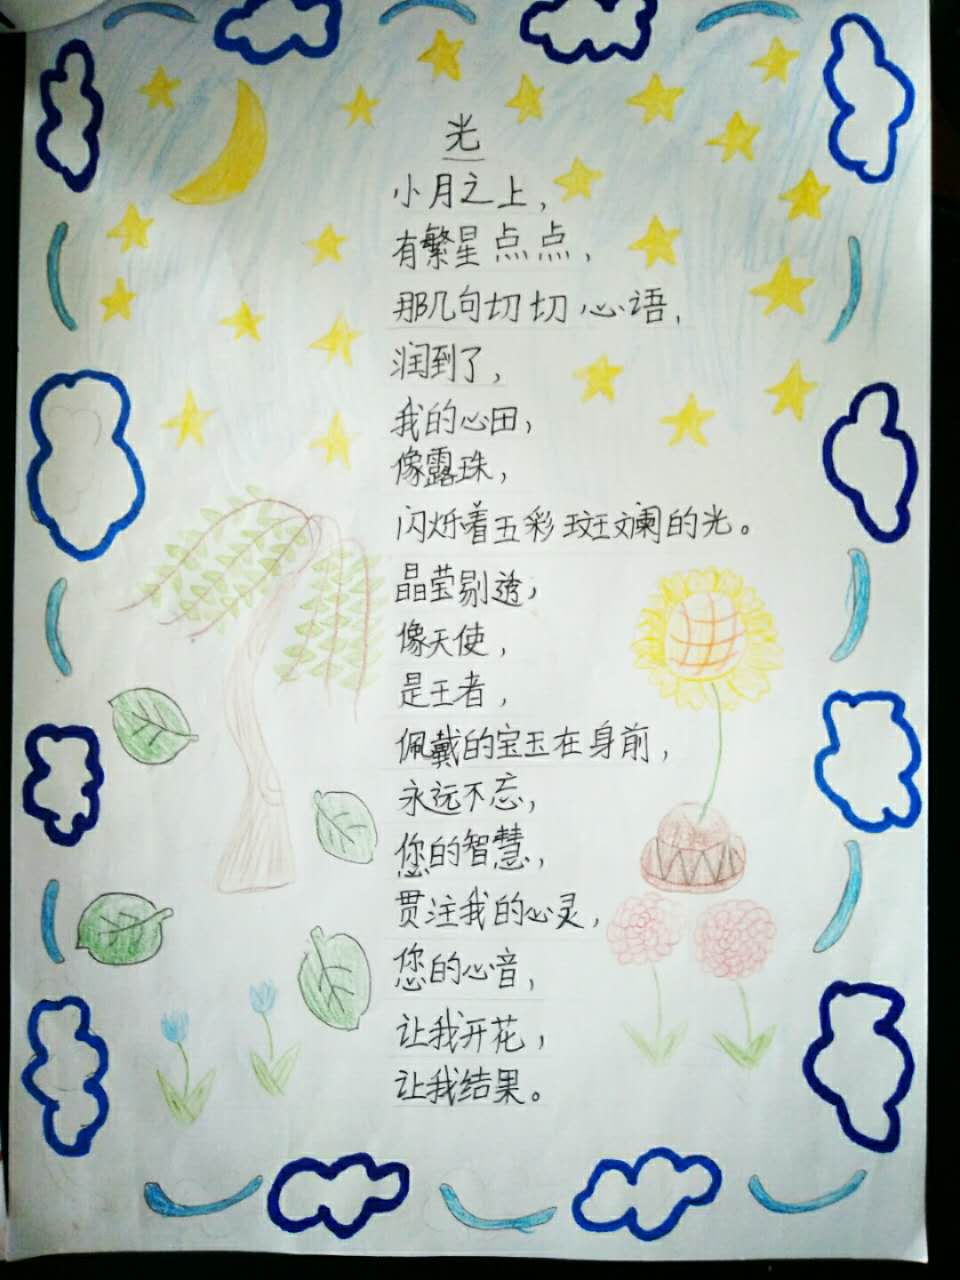 光
小月之上，
有繁星点点，
那几句切切心语，
润到了，
我的心田，
像露珠，
闪烁着五彩斑斓的光。
晶莹剔透，
像天使，
是王者，
佩戴的宝玉在身前，
永远不忘，
您的智慧，
贯注我的心灵，
您的心音，
让我开花，
让我结果。